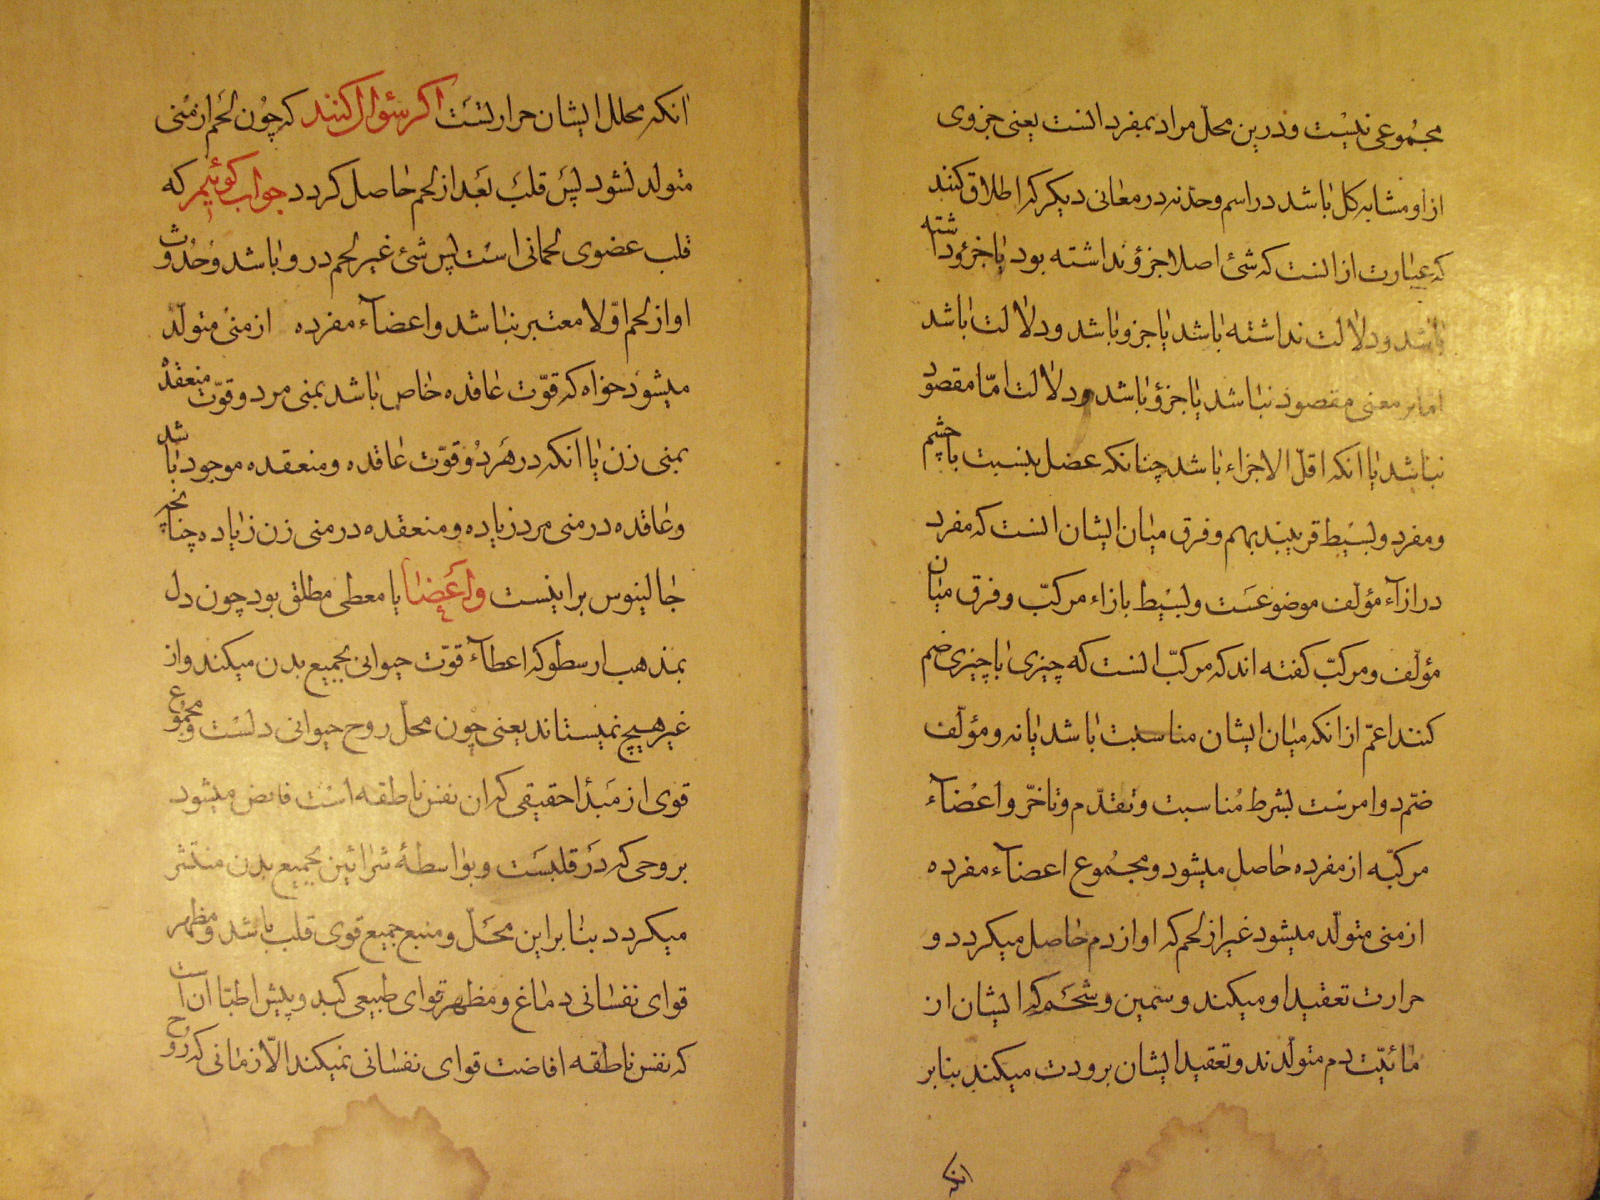 مجموعی نیست و درین محل مراد بمفرد انست یعنی جزوی
از او مشابه کل باشد در اسم وحد نه در معانی دیکر که اطلاق کنند
که عبارت از انست که شئ اصلا جزؤ نداشته بود یا جزؤ داشته
باشد و دلالت نداشته باشد یا جزو باشد و دلالت باشد
اما بر معنی مقصود نباشد یا جزؤ باشد و دلالت امّا مقصود
نباشد یا انکه اقل الاجزاء باشد چنانکه عضل بنسبت با چشم
و مفرد و بسیط قریبند بهم و فرق میان ایشان انست که مفرد
در ازآء مؤلف موضوعست و بسیط بازاء مرکبّ و فرق میان
مؤلف و مرکبّ کفته اند که مرکبّ انست که چیزی با چیزی ضم
کنند اعمّ از انکه میان ایشان مناسبت باشد یا نه و مؤلف
ضمّ دو امرست بشرط مناسبت و تقدّم و تاخّر و اعضآء
مرکبّه از مفرده حاصل میشود و مجموع اعضآء مفرده
از منی متولّد میشود غیر از لحم که او از دم حاصل میکردد و
حرارت تعقید او میکند و سمین و شحم که ایشان از
مائیّت دم متولّدند و تعقید ایشان برودت میکند بنابر
انکه
انکه محلل ایشان حرارتست اکر سؤال کنند که چون لحم از منی
متولد نشود پس قلب بعد از لحم حاصل کردد جواب کوئیم که
قلب عضوی لحمانی است پس شئ غیر لحم در و باشد و حدوث
او از لحم اوّلا معتبر نباشد و اعضآء مفرده از منی متولّد
میشود خواه که قوّت عاقده خاص باشد بمنی مرد و قوّت منعقده
بمنی زن یا انکه در هر دو قوّت عاقده و منعقده موجود باشد
و عاقده در منی مرد زیاده و منعقده در منی زن زیاده چنانچه
جالینوس براینست و اعضا یا معطی مطلق بود چون دل
بمذهب ارسطو که اعطآء قوّت حیوانی بجمیع بدن میکند و از
غیر هیچ نمیستاند یعنی چون محلّ روح حیوانی دلست و مجموع
قوی از مبدأ حقیقی که ان نفس ناطقه است فایض میشود
بروحی که در قلبست و بواسطهٔ شرائین بجمیع بدن منتشر
میکردد بنا براین محلّ و منبع جمیع قوی قلب باشد و مظهر
قوای نفسانی دماغ و مظهر قوای طبیعی کبد و پیش اطبّا ان است
که نفس ناطقه افاضت قوای نفسانی نمیکند الّا زمانی که روح